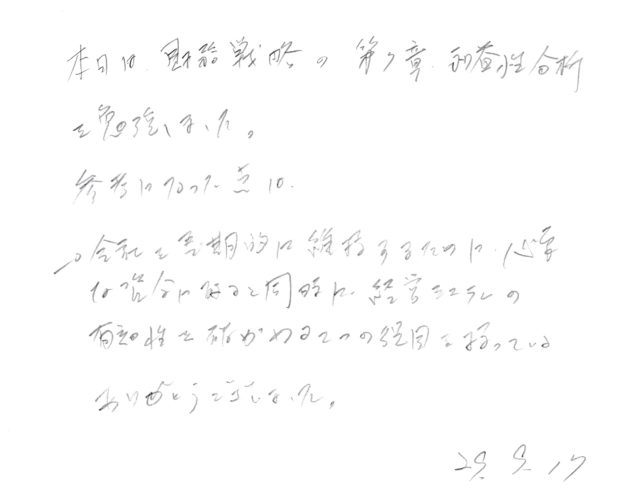 本日は、財務戦略の第7章、利益性分析
を勉強しました。
参考になった点は、
会社を長期的に維持するために、必要
な資金になると同時に、経営システムの
有効性を確かめる2つの役目を持っている
ありがとうございました。
29. 9. 17